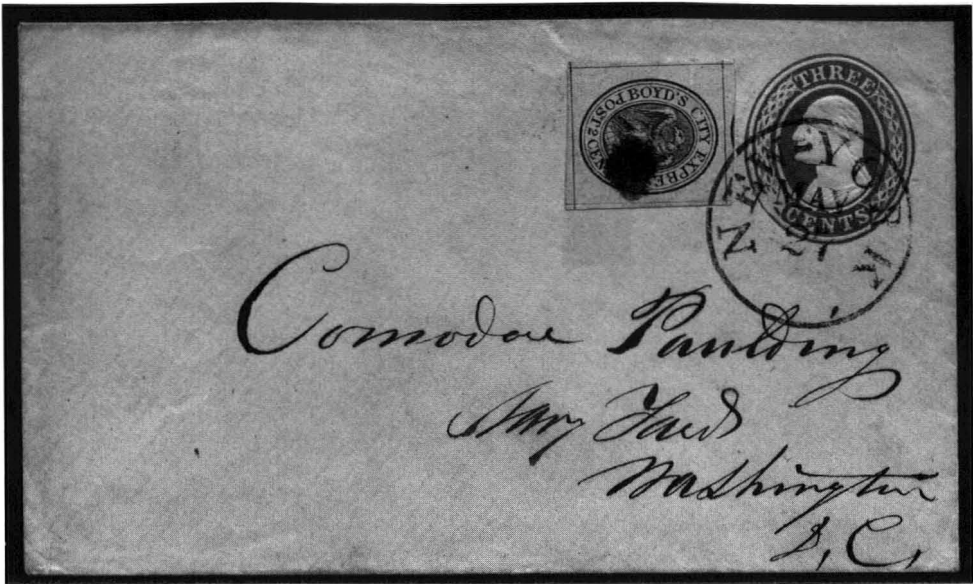 BOYD'S CITY EXPRESS POST 2 CEN
THREE
CENTS
NEW-YO K
MAY
21
Comodore Paulding
Navy Yard
Washington
D. C.